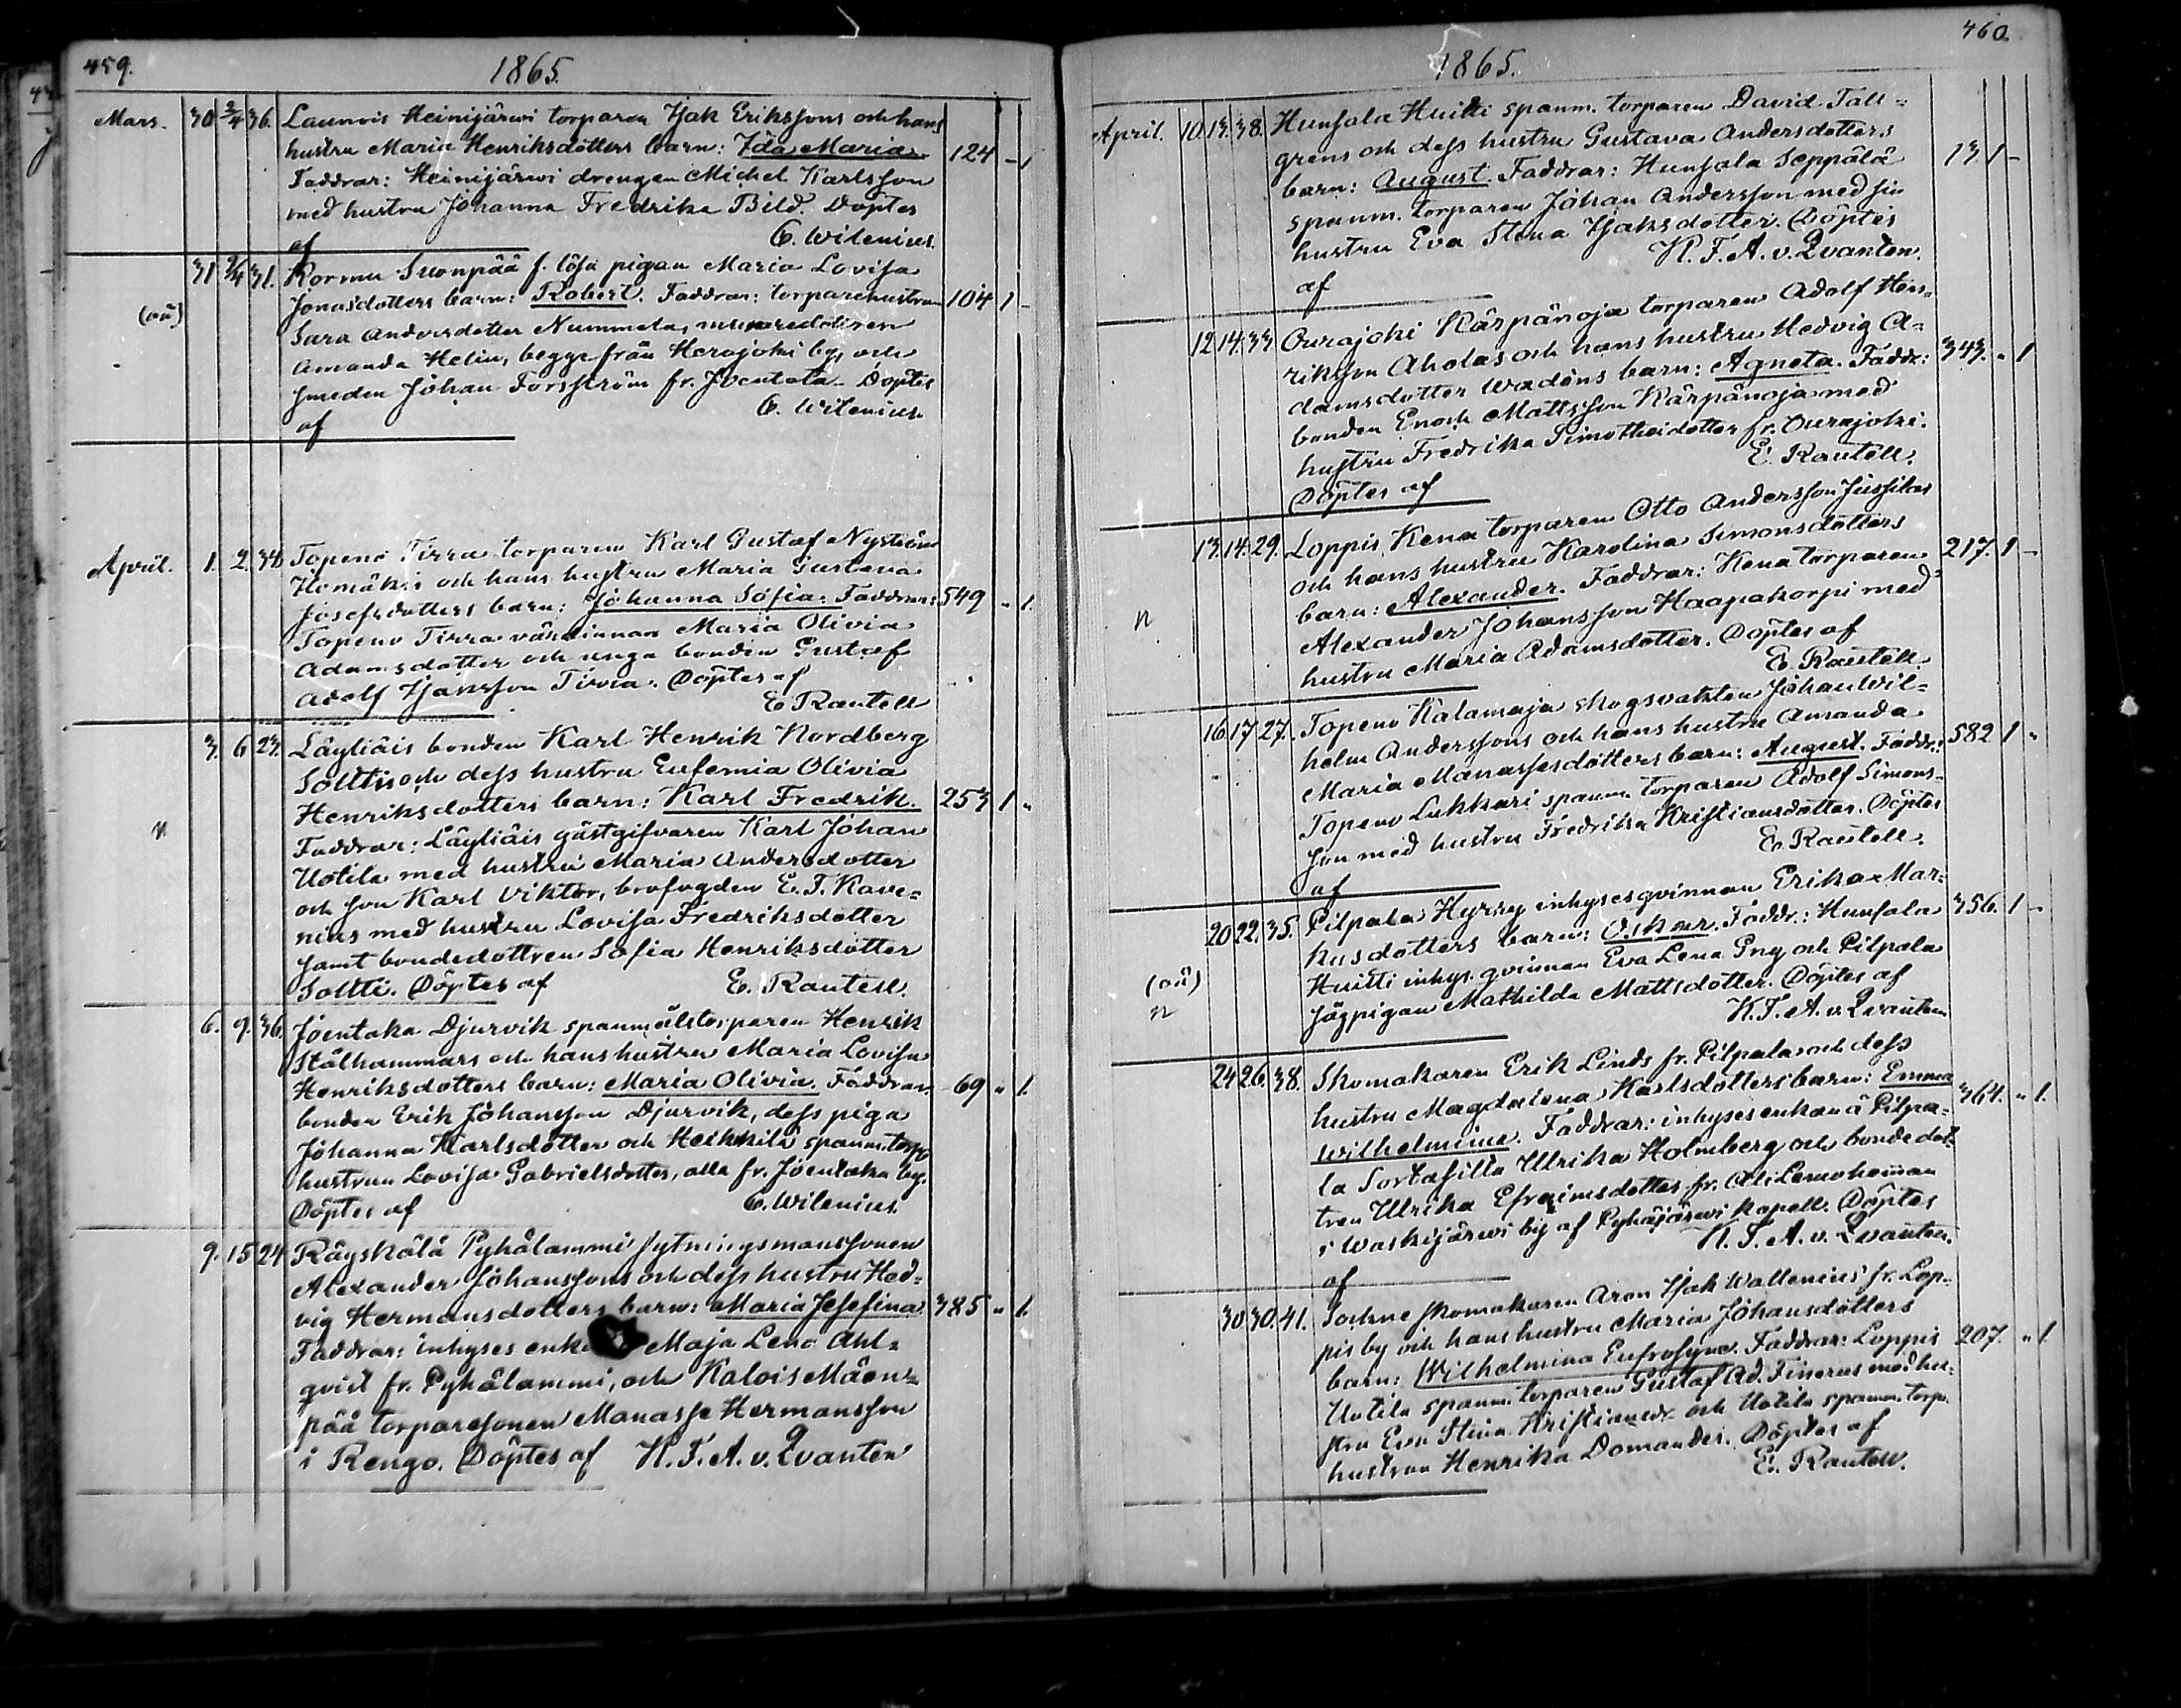 459.
1865.
Mars. 30 2/4 36. Launois Heinijärwi torparen Isak Erikssons och hans
hustru Maria Henriksdotters barn: Ida Maria. 124 - 1
Faddrar: Heinijärwi drengen Michel Karlsson
med hustru Johanna Fredrika Bild. Döptes
af C. Wilenius.
31 2/4 31. Kormu Suonpää f. lösa pigan Maria Lovisa
(oä) Jonasdotters barn: Robert. Faddrar: torparehustrun 104 1 -
Sara Andersdotter Nummela, muraredottren
Amanda Helin, begge från Hervojoki by, och
smeden Johan Forsström fr. Joentaka. Döptes
af C. Wilenius.
April. 1. 2. 34. Topeno Tirra torparen Karl Gustaf Nyström
Homäkis och hans hustru Maria Gustava
Josefsdotters barn: Johanna Sofia. Faddrar: 549 " 1.
Topeno Tirra värdinnan Maria Olivia
Adamsdotter och unga bonden Gustaf
Adolf Isaksson Tirra. Döptes af
E. Rautell
3. 6. 23. Läyliäis bonden Karl Henrik Nordberg
Soltti och dess hustru Eufemia Olivia
Henriksdotters barn: Karl Fredrik. 253 1 "
n Faddrar: Läyliäis gästgifvaren Karl Johan
Uotila med hustru Maria Andersdotter
och son Karl Viktor, brofogden E. J. Kave=
nius med hustru Lovisa Fredriksdotter
samt bondedottren Sofia Henriksdotter
Soltti. Döptes af E. Rautell.
6. 9. 36. Joentaka Djurvik spanmålstorparen Henrik
Stålhammars och hans hustru Maria Lovisa
Henriksdotters barn: Maria Olivia. Faddrar: 69 " 1.
bonden Erik Johansson Djurvik, dess piga
Johanna Karlsdotter och Heikkilä spanm. torp.
hustrun Lovisa Gabrielsdotter, alla fr. Joentaka by.
Döptes af C. Wilenius.
9. 15 24 Räyskälä Pyhälammi sytningsmanssonen
Alexander Johanssons och dess hustru Hed=
vig Hermansdotters barn: Maria Josefina. 385 " 1.
Faddrar: inhyses Maja Lena Ahl=
qvist fr. Pyhälammi, och Kalois Mäen=
pää torparesonen Manasse Hermansson
i Rengo. Döptes af K. F. A. v. Qvanten
460.
1865.
April. 10. 13. 38. Hunsala Huitti spanm. torparen David Täll=
grens och dess hustru Gustava Andersdotters
barn: August. Faddrar: Hunsala Seppälä 13. 1 -
spanm. torparen Johan Andersson med sin
hustru Eva Stina Isaksdotter. Döptes
af K. F. A. v. Qvanten.
12 14. 33 Ourajoki Kärpänoja torparen Adolf Hen=
riksson Aholas och hans hustru Hedvig A=
damsdotter Wadéns barn: Agneta. Faddr.: 343. " 1
bonden Enoch Mattsson Kärpänoja med
hustru Fredrika Simotheidotter fr. Ourajoki.
Döptes af E. Rautell.
13. 14. 29. Loppis Kena torparen Otto Andersson Jussilas
och hans hustru Karolina Simonsdotters
n barn: Alexander. Faddrar: Kena torparen 217. 1 -
Alexander Johansson Haapakorpi med
hustru Maria Adamsdotter. Döptes af
E. Rautell.
16. 17 27. Topeno Kalamaja skogsvakten Johan Wil=
helm Anderssons och hans hustru Amanda
Maria Manassesdotters barn: August. Faddr.: 582 1 "
Topeno Lukkari spanm. torparen Adolf Simons=
son med hustru Fredrika Kristiansdotter. Döptes
af E. Rautell.
20 22. 35. Pilpala Hyrsy inhysesqvinnan Erika Mar=
kusdotters barn: Oskar. Faddr.: Hunsala 356. 1 -
(oä) Huitti inhys. qvinnan Eva Lena Gny och Pilpala
n Jägpigan Mathilda Mattsdotter. Döptes af
K. F. A. v. Qvanten
24 26. 38. Skomakaren Erik Linds fr. Pilpala och dess
hustru Magdalena Karlsdotters barn: Emma
Wilhelmina. Faddrar: inhysesenkan å Pilpa= 364. " 1.
la Sortasilta Ulrika Holmberg och bondedot=
tren Ulrika Efraimsdotter fr. Ali Lemo hemman
i Waskijärwi by af Pyhäjärwi kapell. Döptes
af K. F. A. v. Qvanten.
30. 30. 41. Sockneskomakaren Aron Isak Wallenius fr. Lop=
pis by och hans hustru Maria Johansdotters
barn: Wilhelmina Eufrosyne. Faddrar: Loppis 207. " 1.
Uotila spanm. torparen Gustaf Ad. Finerus med hu=
stru Eva Stina Kristiansdr. och Uotila spanm. torp.
hustrun Henrika Domander. Döptes af
E. Rautell.